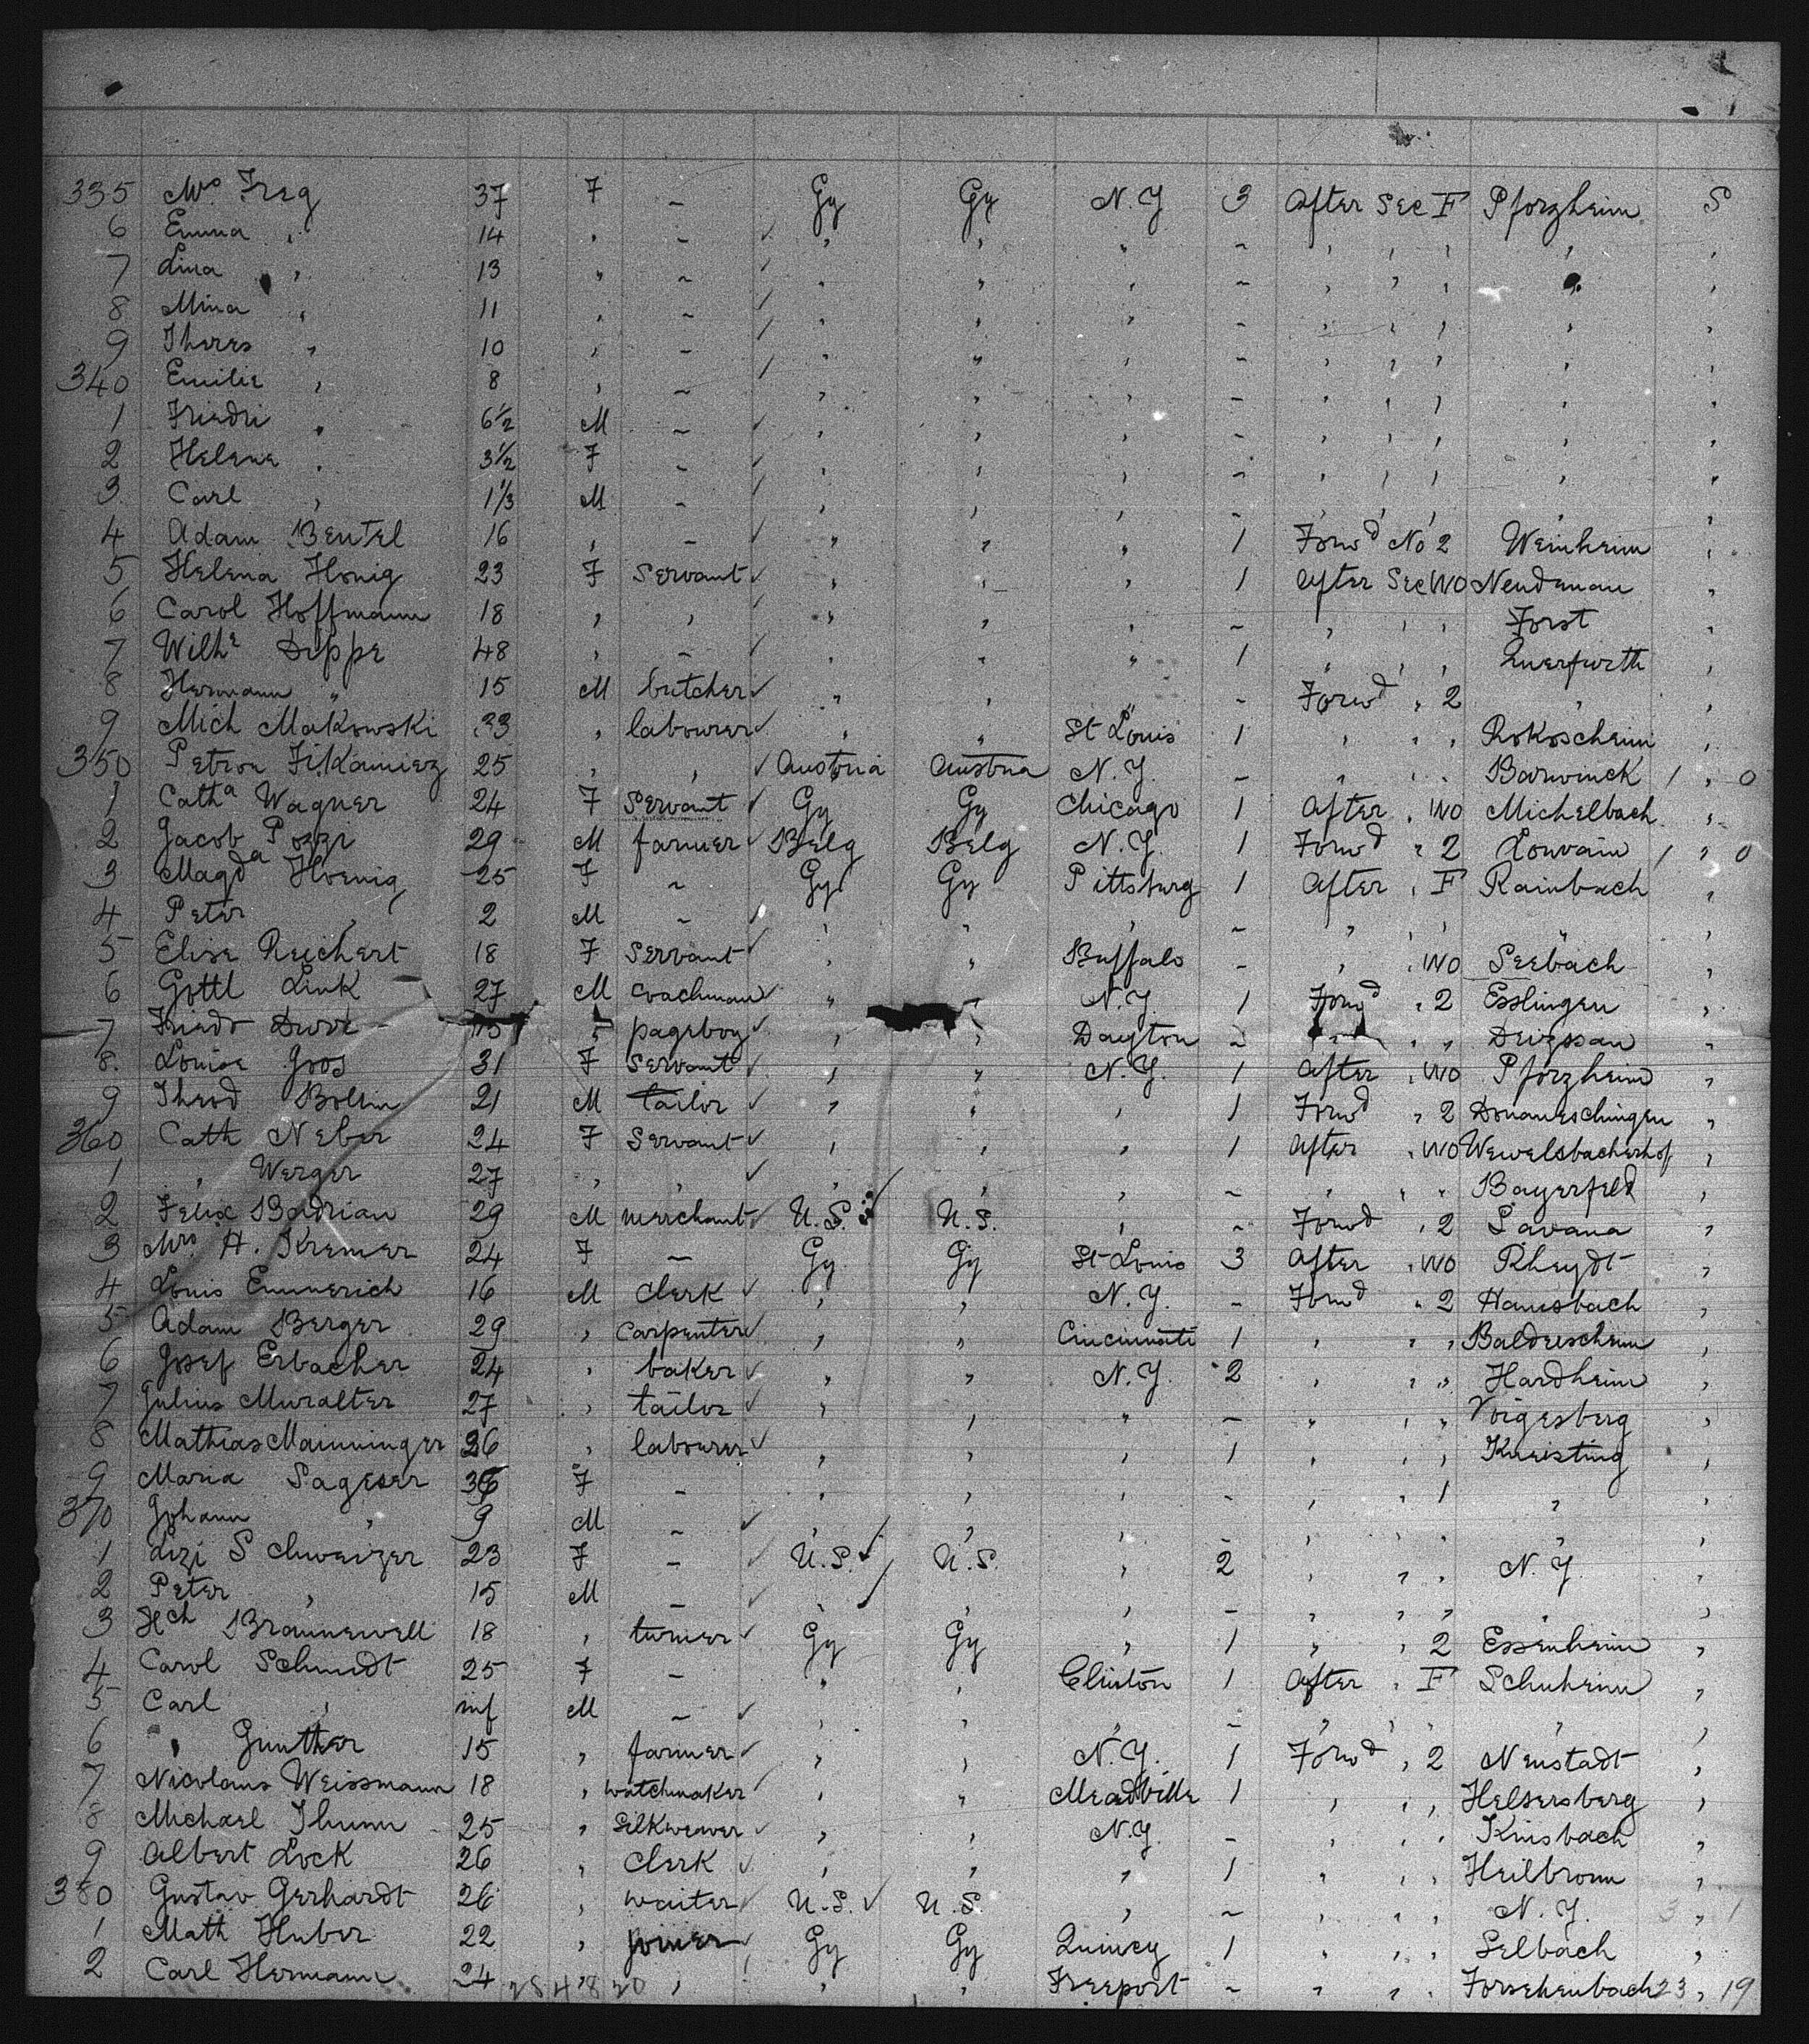 335 Mrs Freg 37 F ~ Gy Gy N.Y 3 After Sec F Pforzheim S
6 Emma " 14 " ~ " " " ~ " " " " "
7 Lina " 13 " ~ " " " ~ " " " " "
8 Mina " 11 " ~ " " " ~ " " " " "
9 Theres " 10 " ~ " " " ~ " " " " "
340 Emilie " 8 " ~ " " " ~ " " " " "
1 Friedr " 6½ M ~ " " " ~ " " " " "
2 Helene " 3½ F ~ " " " ~ " " " " "
3 Carl " 1⅓ M ~ " " " ~ " " " " "
4 Adam Beutel 16 " ~ " " " 1 Forwd No 2 Weinheim "
5 Helena Honig 23 F Servant " " " 1 After Sec WO Neudenau "
6 Carol Hoffmann 18 " " " " " ~ " " " Forst "
7 Wilhe Dippe 48 " ~ " " " 1 " " " Querfurth "
8 Hermann " 15 M butcher " " " ~ Forwd " 2 " "
9 Mich Makowski 33 " labourer " " St Louis 1 " " " Rokoscheim "
350 Petron 25 " " Austria Austria N.Y. ~ " " " Barwinck 1 " 0
1 Catha Wagner 24 F Servant Gy Gy Chicago 1 After " WO Michelbach "
2 Jacob Pozzi 29 M farmer Belg Belg N.Y. 1 Forwd " 2 Louvain 1 " 0
3 Magda Hoenig 25 F ~ Gy Gy Pittsburg 1 After " F Rainbach "
4 Peter " 2 M ~ " " " ~ " " " " "
5 Elise Reichert 18 F Servant " " Buffalo ~ " " WO Seebach "
6 Gottl Link 27 M Coachman " " N.Y. 1 Forwd " 2 Esslingen "
7 Friedr 15 " pageboy " " Dayton ~ " " " "
8 Louise Gros 31 F Servant " " N.Y. 1 After " WO Pforzheim "
9 Theod 21 M tailor " " " 1 Forwd " 2 Donaueschingen "
360 Cath Neber 24 F Servant " " " 1 After " WO Wewelsbacherhof "
1 " Werger 27 " " " " " ~ " " " Bayerfeld "
2 Felix Badrian 29 M merchant U.S. U.S. " ~ Forwd " 2 "
3 Mrs H. Kremer 24 F ~ Gy Gy St Louis 3 After " WO Rheydt "
4 Louis Emmerich 16 M Clerk " " N.Y. ~ Forwd " 2 Hausbach "
5 Adam Berger 29 " Carpenter " " Cincinnati 1 " " " "
6 Josef Erbacher 24 " baker " " N.Y. 2 " " " Hardheim "
7 Julius Muralter 27 " tailor " " " ~ " " " Voigesberg "
8 Mathias Mainninger 26 " labourer " " " 1 " " " Kneisting "
9 Maria Sageser 36 F ~ " " " ~ " " 1 " "
370 Johann " 9 M ~ " " " ~ " " " " "
1 Lizi Schweizer 23 F ~ U.S. U.S. " 2 " " " N.Y. "
2 Peter " 15 M ~ " " " ~ " " " " "
3 Hch Braunewell 18 " turner Gy Gy " 1 " " 2 Essenheim "
4 Carol Schmidt 25 F ~ " " Clinton 1 After " F Schuheim "
5 Carl " inf M ~ " " " ~ " " " " "
6 " Gunther 15 " farmer " " N.Y. 1 Forwd " 2 Neustadt "
7 Nicolaus Weissmann 18 " watchmaker " " Meadville 1 " " " Helsersberg "
8 Michael Thumm 25 " Silkweaver " " N.Y. ~ " " " "
9 Albert Lock 26 " Clerk " " " 1 " " " Heilbronn "
380 Gustav Gerhardt 26 " waiter U.S. U.S. " ~ " " " N.Y. 3 " 1
1 Math Huber 22 " joiner Gy Gy Quincy 1 " " " Selbach "
2 Carl Hermann 24 " " " " Freeport ~ " " " 23 " 19